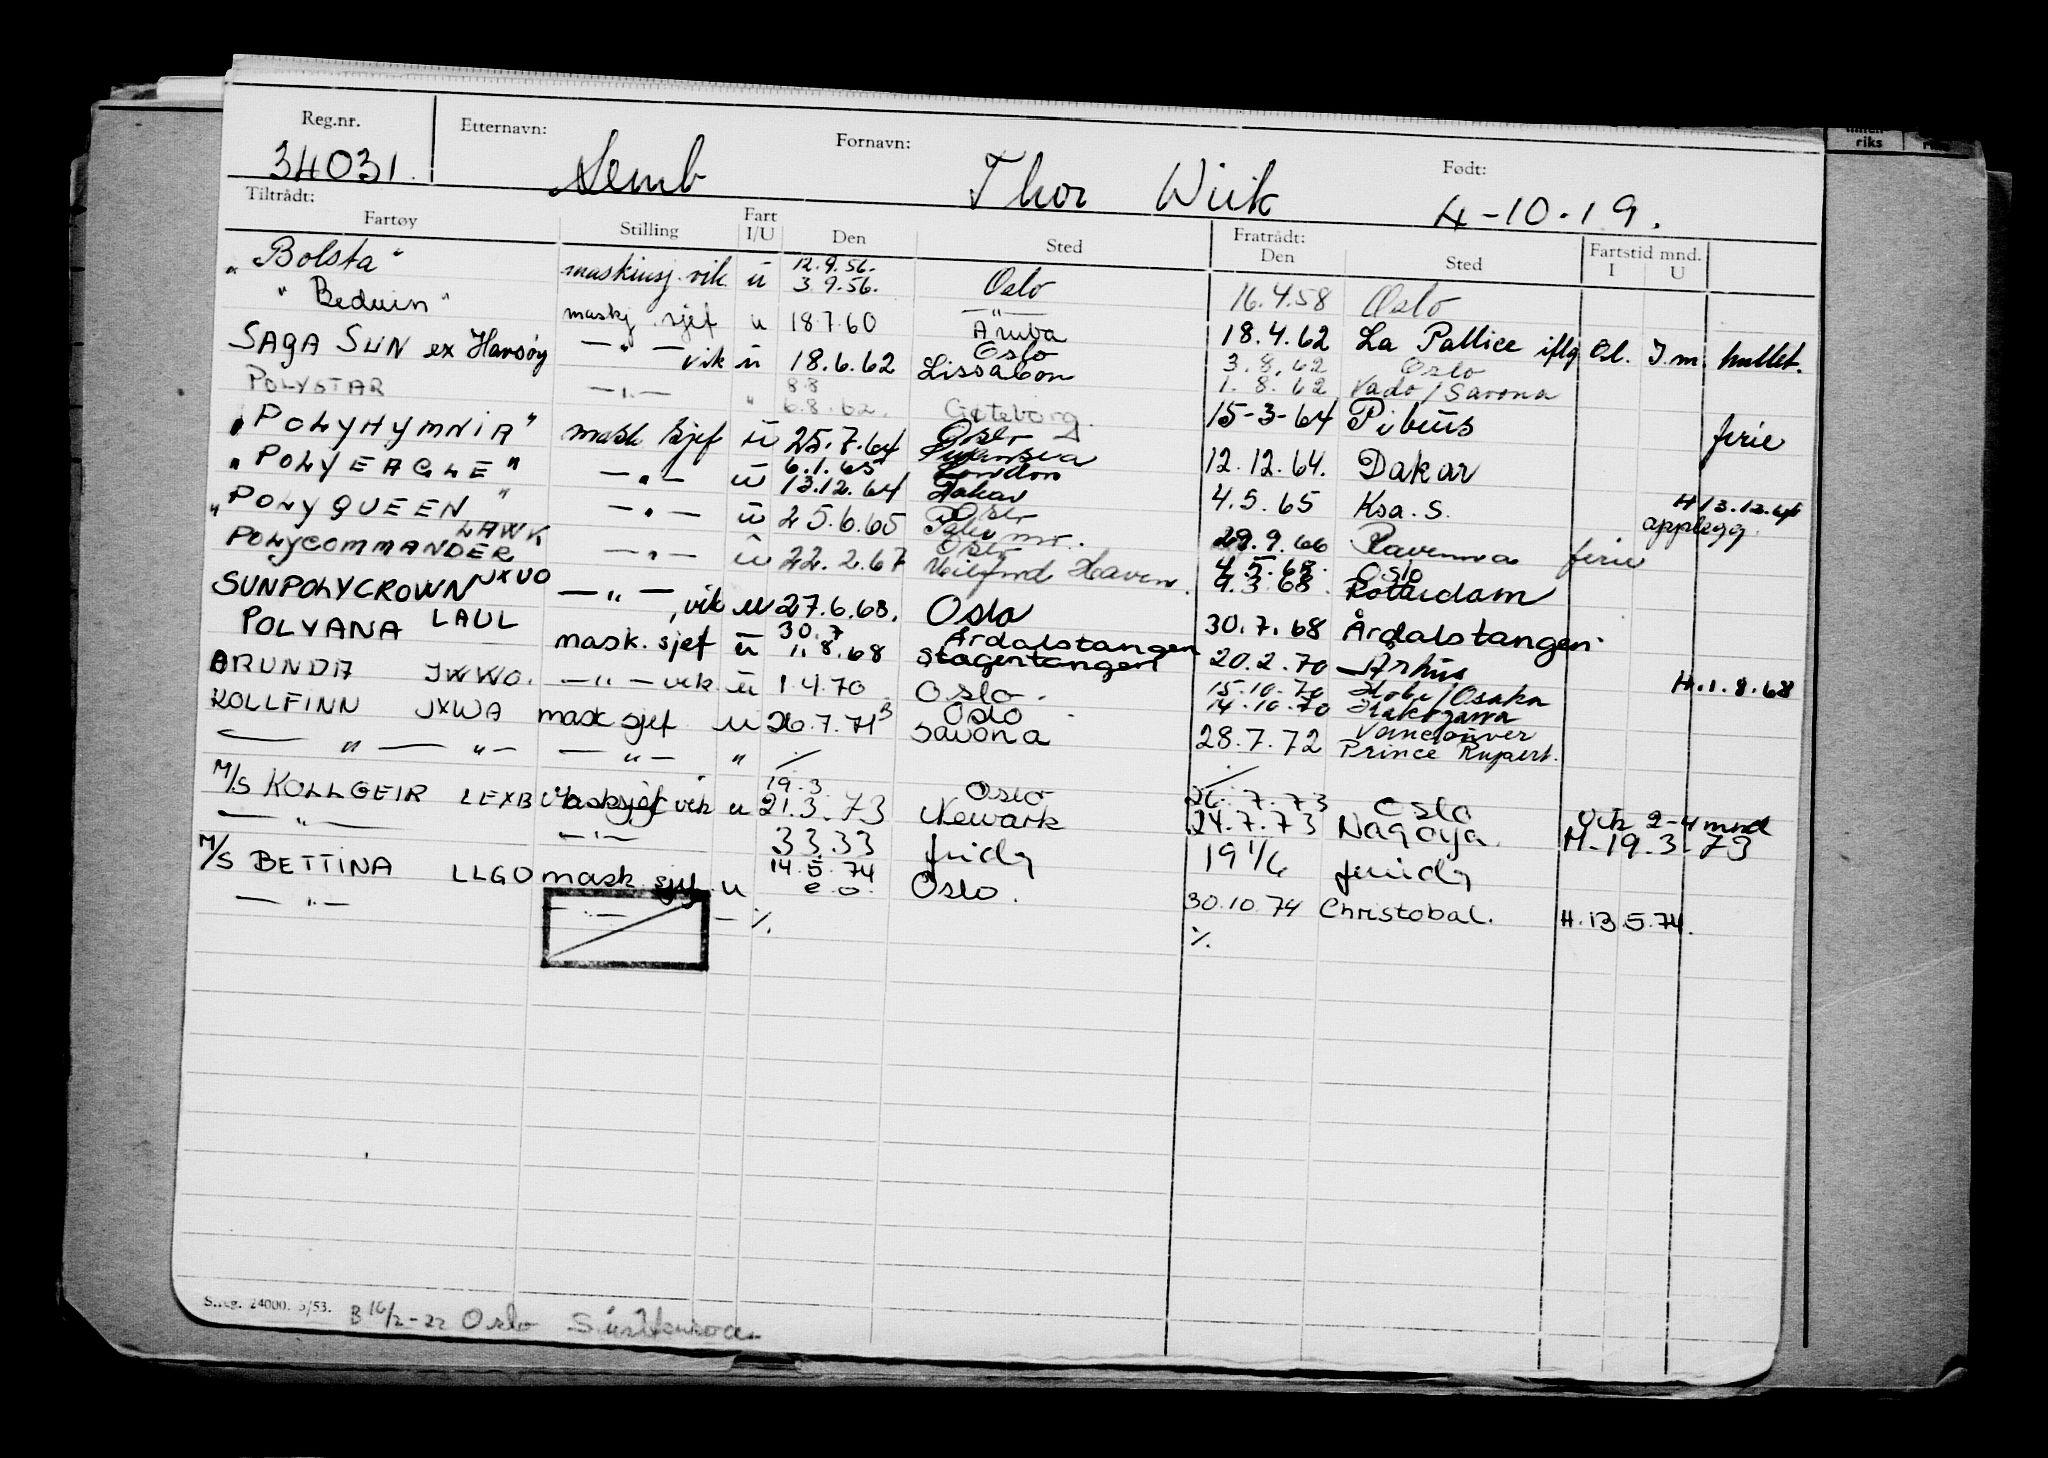 Reg.nr. Etternavn: Fornavn: Født:
34031. Semb Thor Wiik 4-10-19.
Tiltrådt: Fratrådt:
Fartøy Stilling Fart I/U Den Sted Den Sted Fartstid mnd. I U
"Bolsta" maskinsj. vik. ü 12.9.56. 3.9.56. Oslo 16.4.58 Oslo
"Beduin" maskj. sjef u 18.7.60 — " — Aruba 18.4.62 La Pallice iflg Ol. I.m. hullet.
SAGA SUN ex Havsøy — " — vik ü 18.6.62 Oslo Lissabon 3.8.62 Oslo 1.8.62 Vado/Savona
POLYSTAR — " — " 8.8 6.8.62. Gøteborg 15-3-64 Piteüs ferie
"POLYHYMNIA" mask sjef ü 25.7.64 Oslo 12.12.64. Dakar
"POLYEAGLE" — " — ü 6.1.65 13.12.64 London Dakar 4.5.65 Ksa. S. H 13.12.64
"POLYQUEEN" — " — ü 25.6.65 Oslo 29.9.66 Ravenna ferie
applegg.
POLYCOMMANDER LAWK — " — ü 22.2.67 Oslo Milford Haven. 4.5.68. Oslo 9.3.68. Rotterdam
SUNPOLYCROWN JXUO — " — , vik u 27.6.68. Oslo 30.7.68 Årdalstangen
POLYANA LAUL mask. sjef ü 30.7 1.8.68 Årdalstangen Slagentangen 20.2.70 Århus H.1.8.68
ARUNDA JWWO. — " — vik ü 1.4.70 Oslo. 15.10.70 Kobe/Osaka 14.10.70 Kakogawa
KOLLFINN JXWA mask sjef u 26.7.71 B Oslo Savona 28.7.72 Vancouver Prince Rupert.
— " — " — — " — " /. /.
M/S KOLLGEIR LEXB Masksjef vik u 19.3. 21.3.73 Oslo Newark 26.7.73 Oslo 24.7.73 Nagoya. Vik 2-4 mnd H-19.3-73
— " — — " — 33.33 19 1/6
M/S BETTINA LLGO mask. sjef u 14.5.74 e.o. Oslo. 30.10.74 Christobal. H.13.5.74.
— " — — " — — /. /.
S.reg. 24000. 5/53. B 16/2-22 Oslo